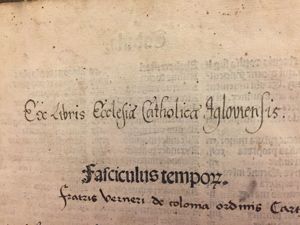 Ex Libris Ecclesiæ Catholicæ
Fasciculus tempoꝝ.
fratris verneri de colonia ordinis Cart